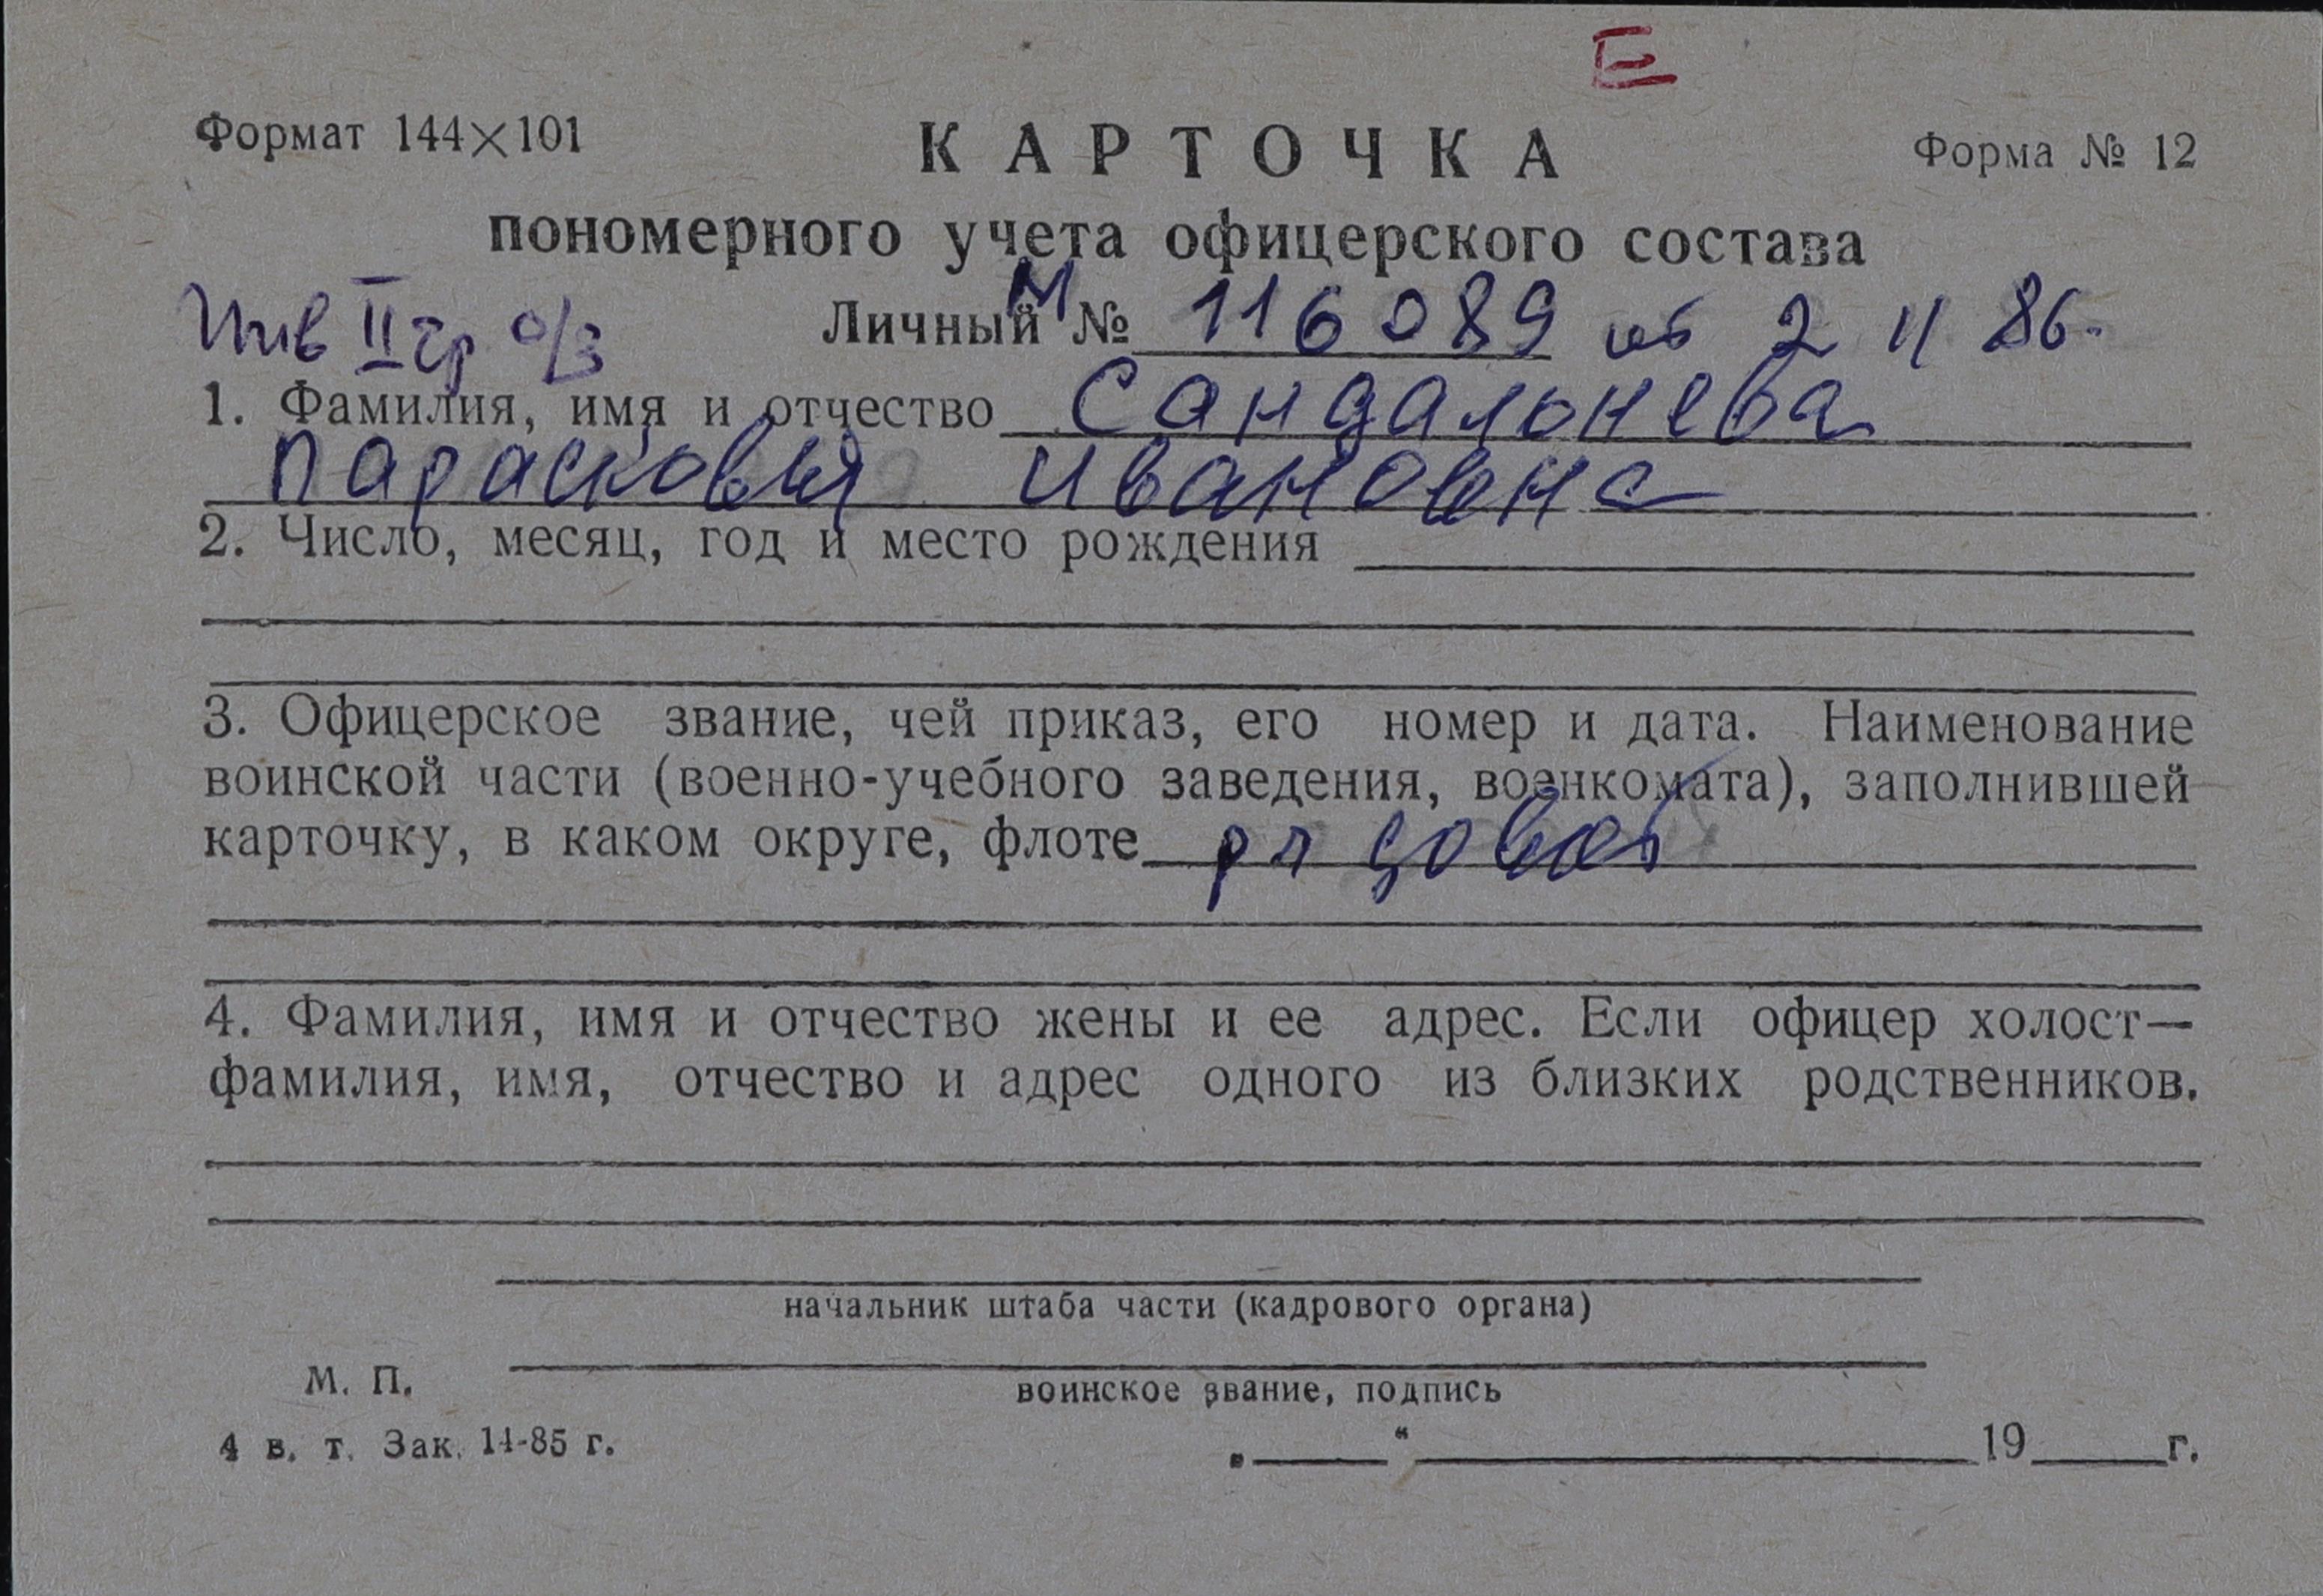 Е
Формат 144×101
КАРТОЧКА
Форма № 12
пономерного учета офицерского состава
Инв II гр о/з
Личный № М 116089 от 2 11 86.
1. Фамилия, имя и отчество Сандалонева
Парасковья Ивановна
2. Число, месяц, год и место рождения
3. Офицерское звание, чей приказ, его номер и дата. Наименование
воинской части (военно-учебного заведения, военкомата), заполнившей
карточку, в каком округе, флоте рядовой
4. Фамилия, имя и отчество жены и ее адрес. Если офицер холост—
фамилия, имя, отчество и адрес одного из близких родственников.
начальник штаба части (кадрового органа)
М. П.
воинское звание, подпись
4 в. т. Зак. 14-85 г.
„ “ 19 г.